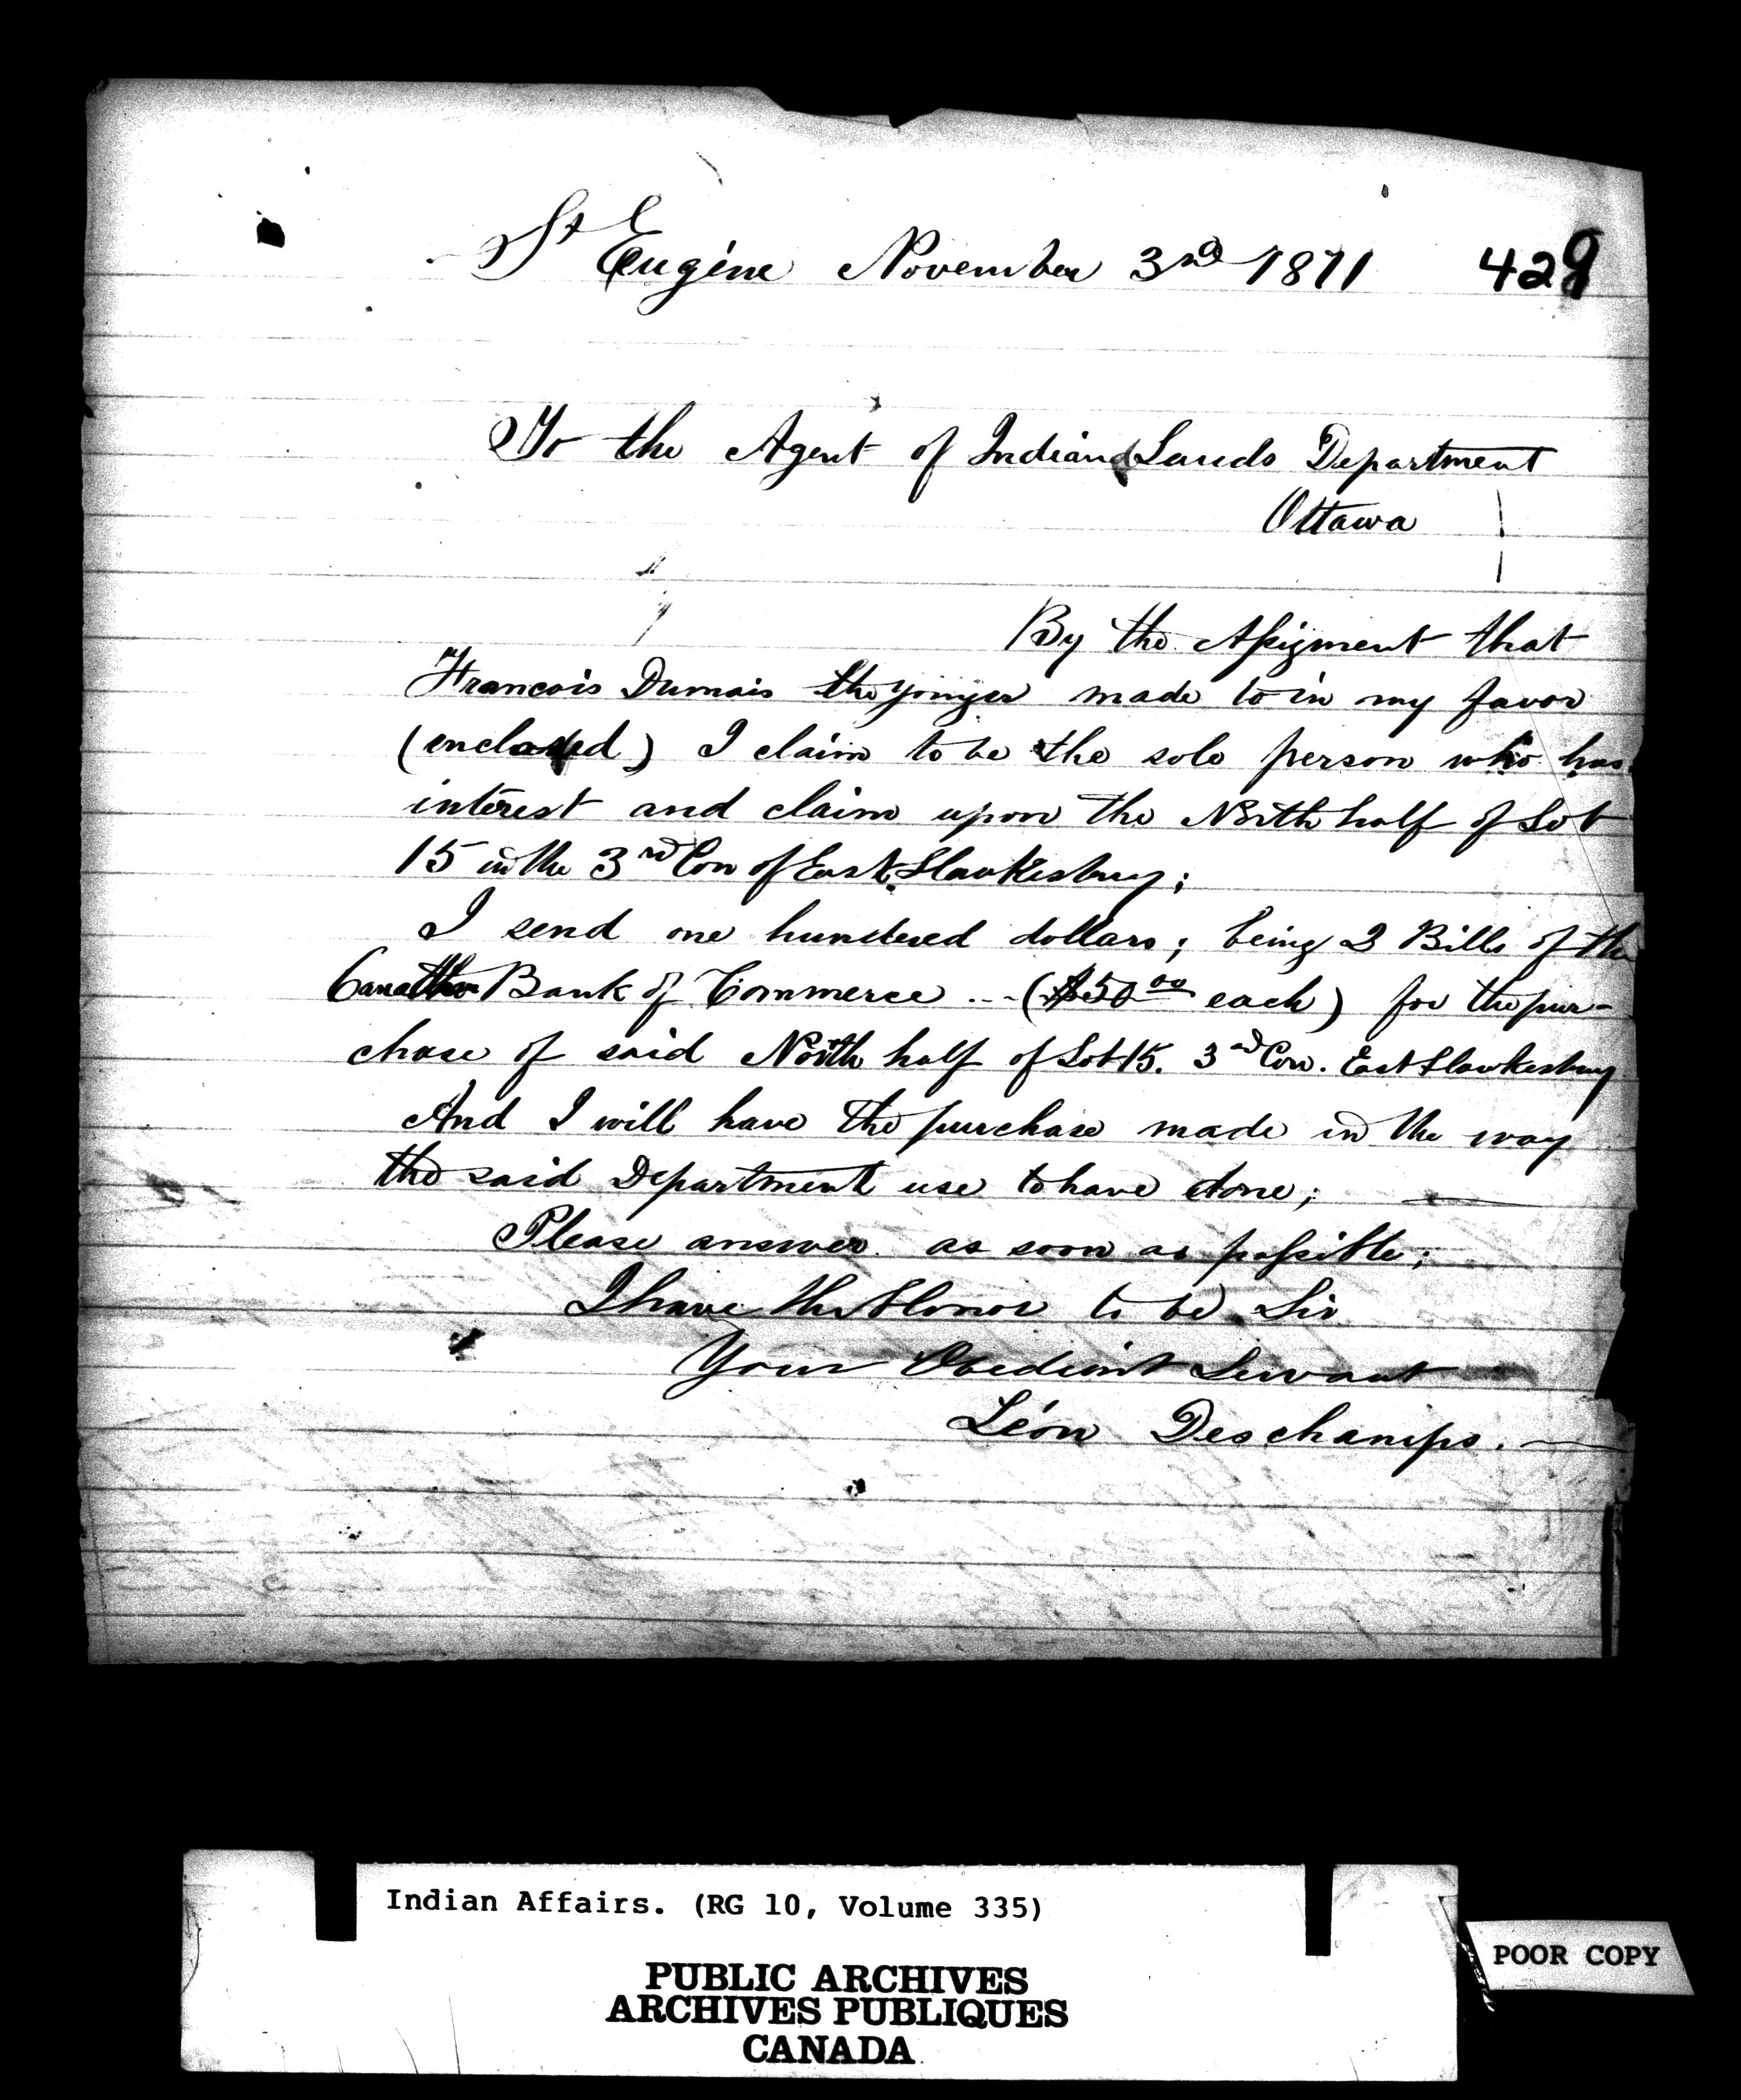 St Eugène November 3rd 1871 429
To the Agent of Indian Lands Department
Ottawa
By the Assigment that
Francois Dumais the yonger made to in my favor
(enclosed) I claim to be the sole person who has
interest and claim upon the North half of Lot
15 in the 3rd Con of East Hawkesbury;
I send one hundered dollars; being 2 Bills of the
Bank of Commerce ... ($50.00 each) for the pur-
chase of said North half of Lot 15. 3rd Con. East Hawkesbury
And I will have the purchase made in the way
the said Department use to have done;
Please answer as soon as possible;
I have the Honor to be Sir
Your Obedient Servant
Léon Deschamps.
Indian Affairs. (RG 10, Volume 335)
PUBLIC ARCHIVES
ARCHIVES PUBLIQUES
CANADA
POOR COPY